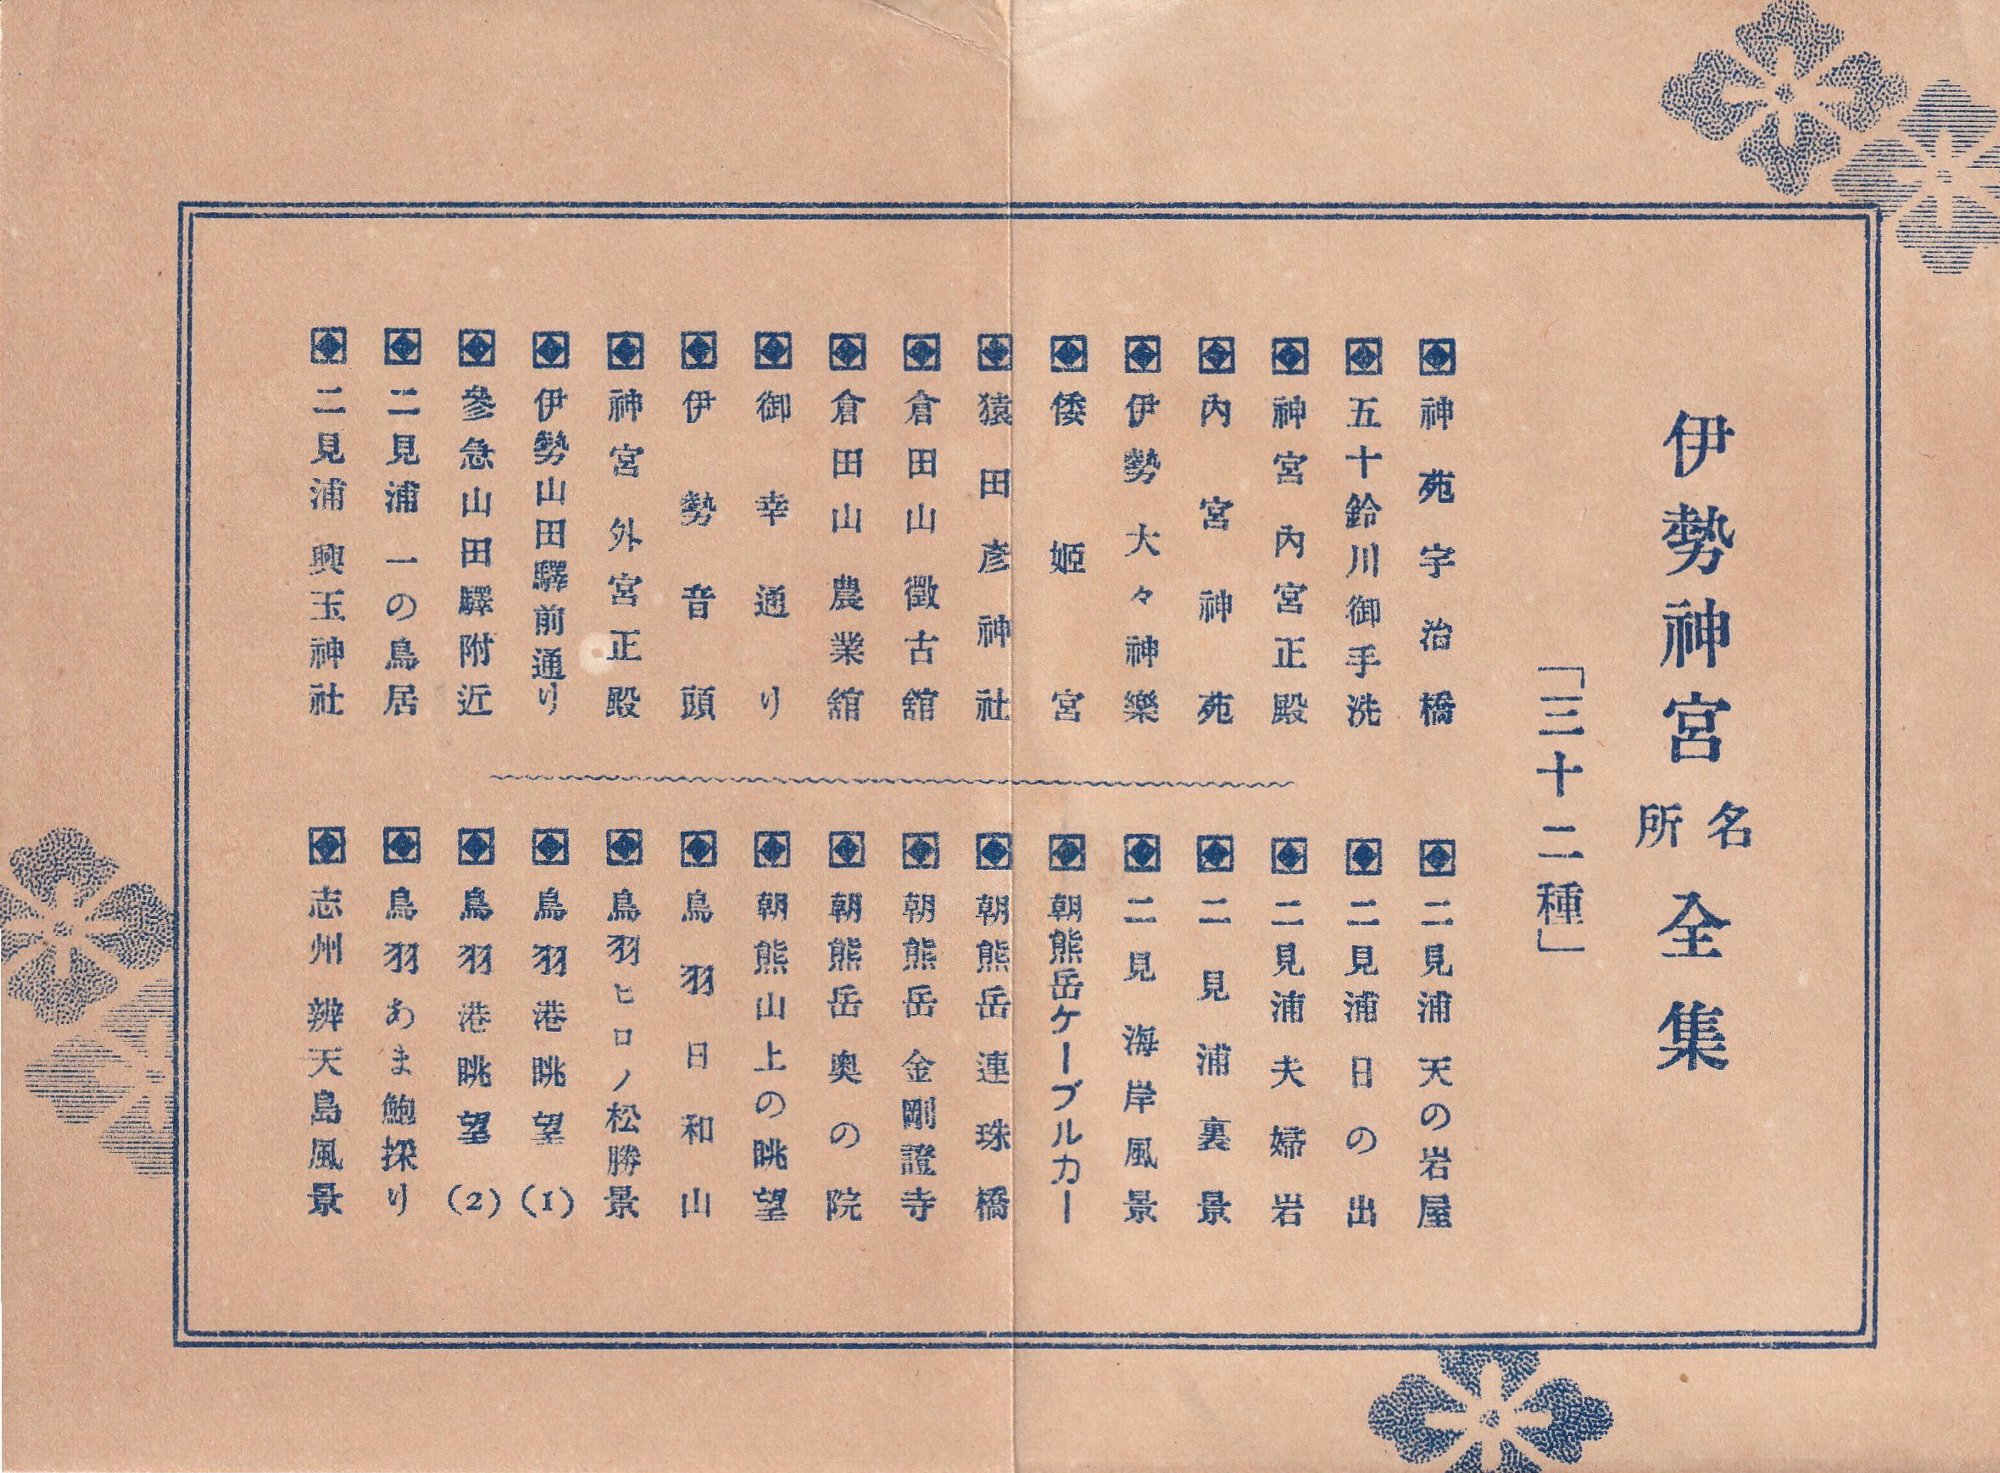 伊勢神宮名所全集
「三十二種」
神苑宇治橋
五十鈴川御手洗
神宮內宮正殿
內宮神苑
伊勢大々神樂
倭姬宮
猿田彥神社
倉田山徵古舘
倉田山農業舘
御幸通り
伊勢音頭
神宮外宮正殿
伊勢山田驛前通り
參急山田驛附近
二見浦一の鳥居
二見浦興玉神社
二見浦天の岩屋
二見浦日の出
二見浦夫婦岩
二見浦裏景
二見海岸風景
朝熊岳ケーブルカー
朝熊岳連珠橋
朝熊岳金剛證寺
朝熊岳奥の院
朝熊山上の眺望
鳥羽日和山
鳥羽ヒロノ松勝景
鳥羽港眺望(1)
鳥羽港眺望(2)
鳥羽あま鮑採り
志州辨天島風景